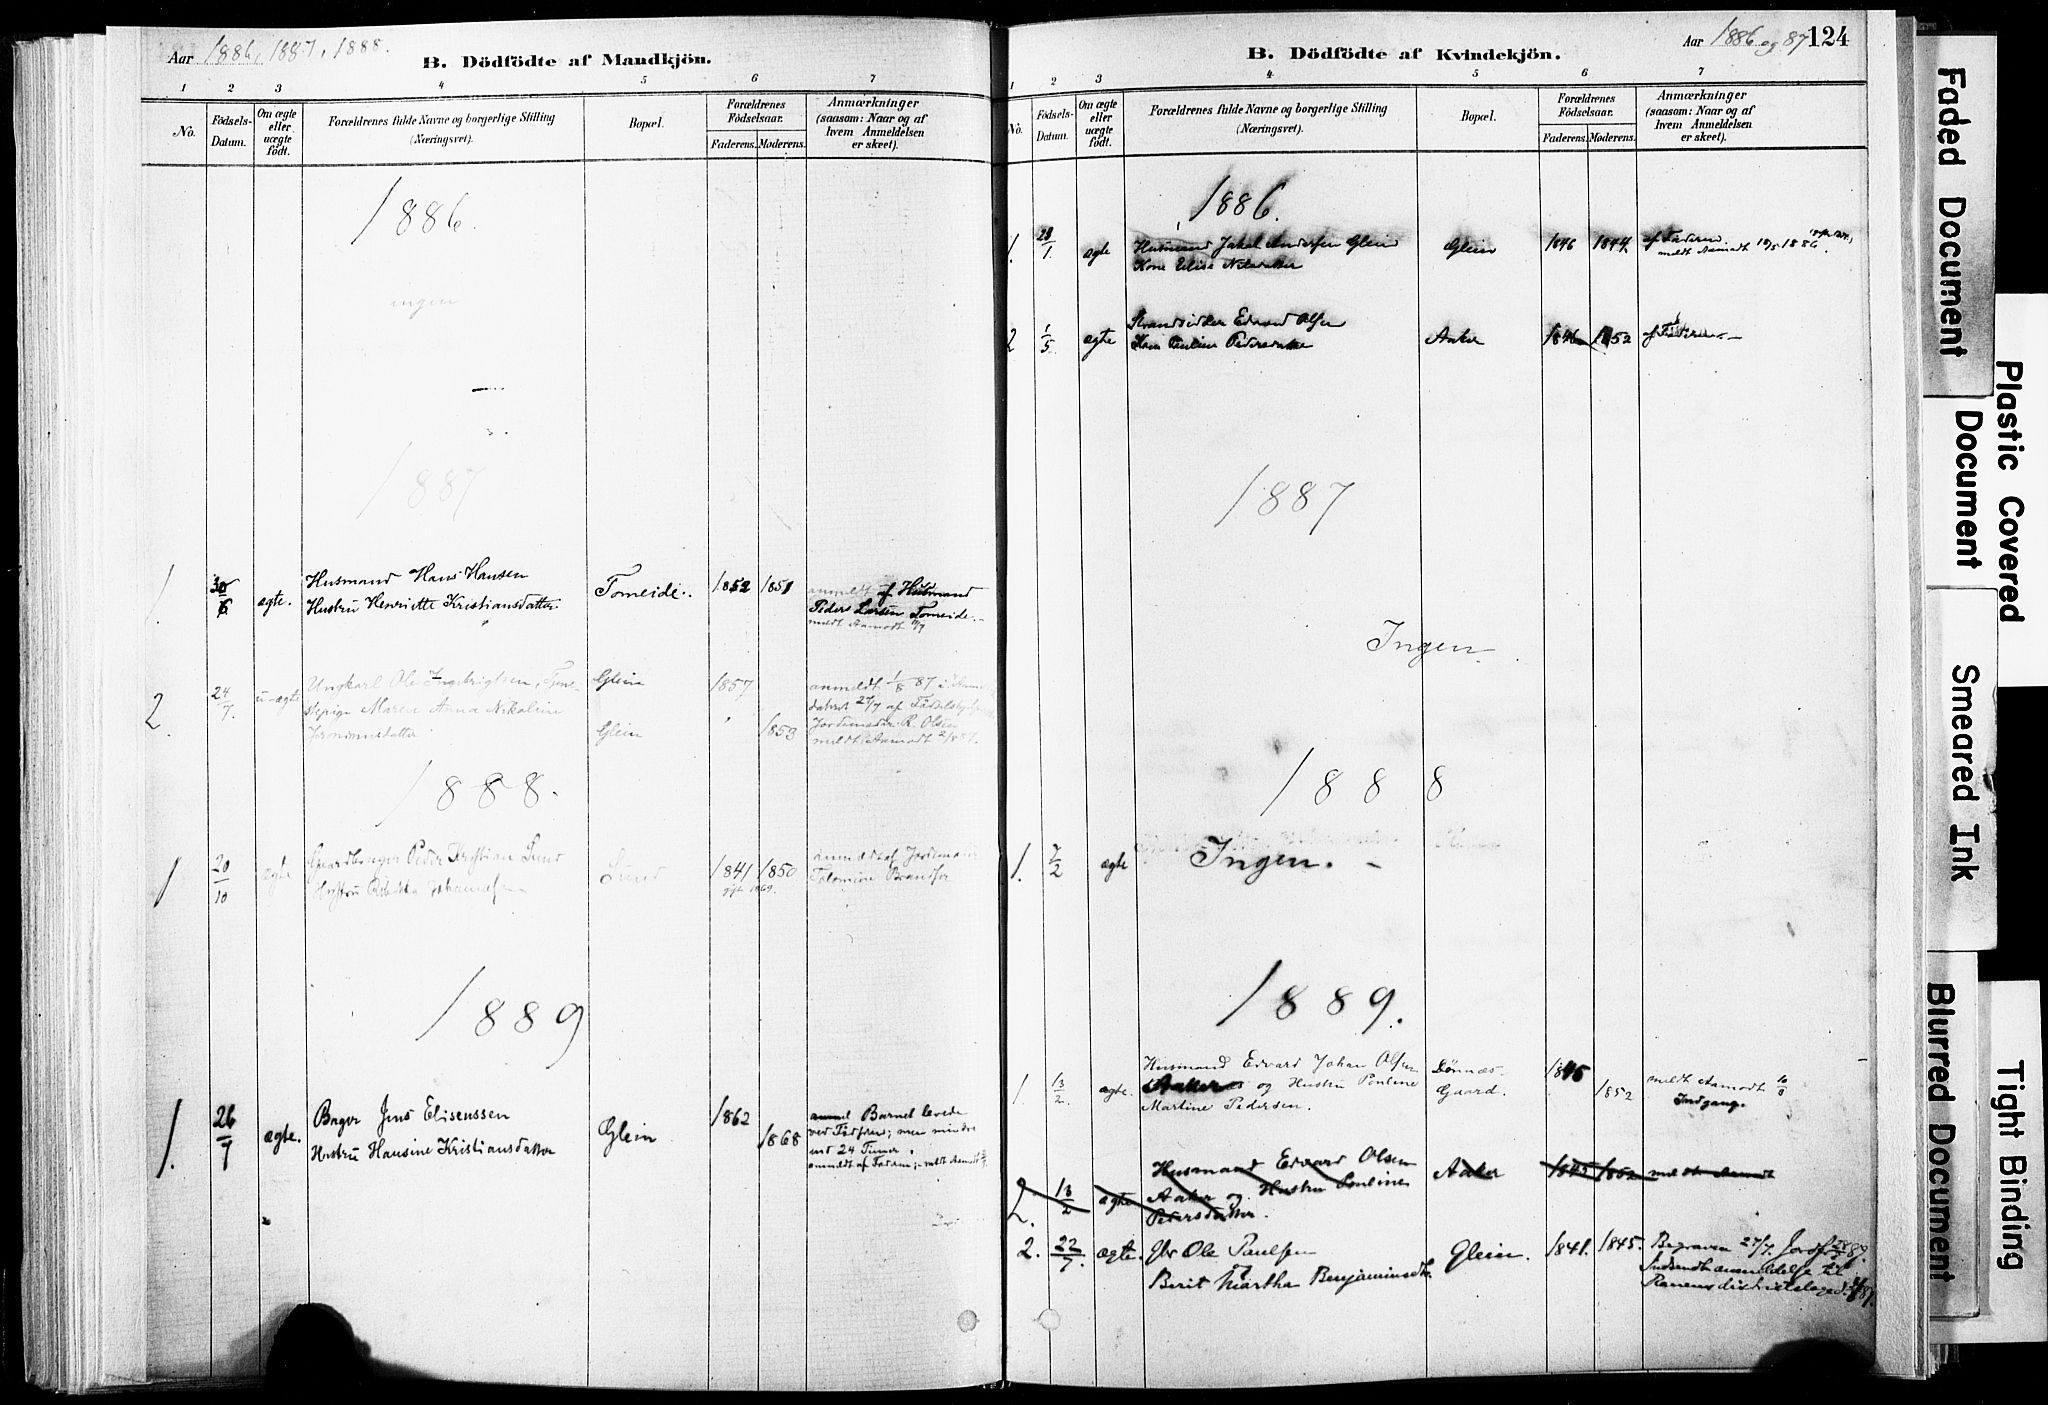 Aar 1886, 1887, 1888.
B. Dödfödte af Mandkjön.
1 2 3 4 5 6 7
No.
Födsels-
Datum.
Om ægte
eller
uægte
födt.
Forældrenes fulde Navne og borgerlige Stilling
(Næringsvei).
Bopæl.
Forældrenes
Födselsaar.
Faderens. Moderens.
Anmærkninger
(saasom: Naar og af
hvem Anmeldelsen
er skeet).
1886.
ingen
1887
1. 30/6 ægte. Husmand Hans Hansen Tomeide. 1852 1851 anmeldt af Husmand
Hustru Henriette Kristiansdatter. Peder Larsen Tomeide.
meldt Aamodt
2. 24/7. u-ægte Ungkarl Ole Ingebrigtsen, Tjene- Glein 1857 anmeldt 1/8 87
stepige Maren Anna Nikoline 27/7 af
Glein 1859 Jordemoder R. Olsen
meldt Aamodt
1888.
1 20/10 ægte Gaardbruger Peder Kristian Sund Sund 1841 1850 anmeldt af Jordemoder
Hustru gift 1869.
1889
1. 26/9 ægte. Bager Jens Elisenssen Glein 1862 Barnet levede
Hustru Hansine Kristiansdatter 1868 ved Födselen; men mindre
end 24 Timer.
anmeldt af Faderen; meldt Aamodt
B. Dödfödte af Kvindekjön.
Aar 1886 og 87 124
1 2 3 4 5 6 7
No.
Födsels-
Datum.
Om ægte
eller
uægte
födt.
Forældrenes fulde Navne og borgerlige Stilling
(Næringsvei).
Bopæl.
Forældrenes
Födselsaar.
Faderens. Moderens.
Anmærkninger
(saasom: Naar og af
hvem Anmeldelsen
er skeet).
1886.
1. 28/1 ægte Husmand Jakob Andersen Glein Glein 1846 1844 af Faderen
Kone Elise Nilsdatter meldt Aamodt 10/5 1886.
2 1/5 ægte Strandsidder Edvard Olsen Aaker 1846 1852 af Faderen
Kone Pauline Pedersdatter
1887
Ingen.
1888
1. 7/2 ægte Ingen.
1889.
1. 13/2 ægte. Husmand Edvard Johan Olsen Dönnæs- 1845 meldt Aamodt
og Hustru Pauline Gaard. 1852 Indgang.
Martine Pedersen.
2. 13/2 ægte Husmand Edvard Olsen Aaker 1845 1852 meldt Aamodt
Aaker og Hustru Pauline
Pedersdatter.
2. 22/7. ægte. Gbr Ole Paulsen Glein. 1841. 1845. Begraven 27/7.
Berit Martha Benjaminsdtr. Indsendt anmeldelse til
Ranens distriktslæge
Faded Document
Plastic Covered
Document
Smeared Ink
Blurred Document
Tight Binding